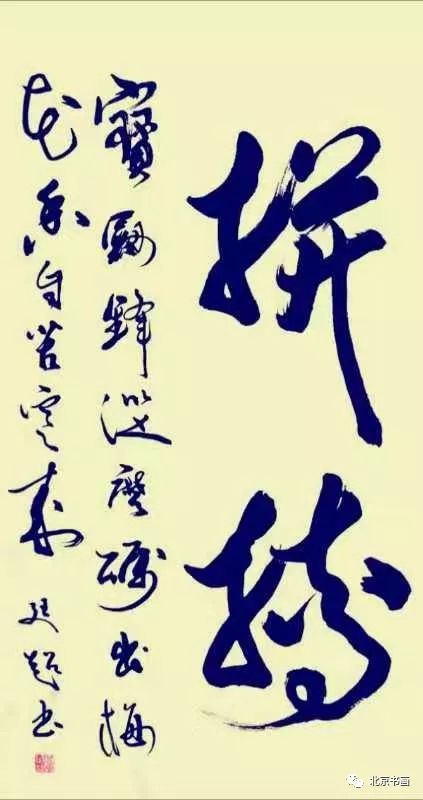 拼搏
寶劍鋒從磨礪出梅
花香自苦寒来 廷超书
北京书画